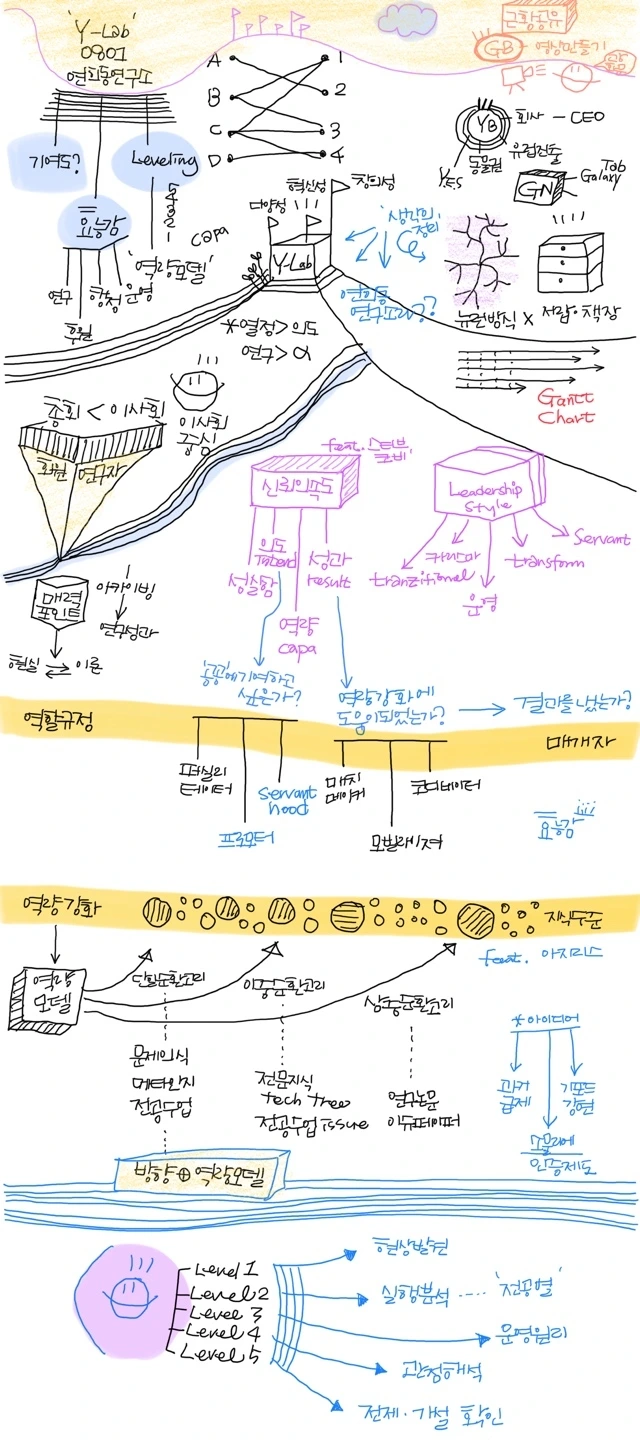 'Y-Lab'
0801
연희동연구소
근황공유
GB - 영상만들기
A
B
C
D
1
2
3
4
기여도?
Leveling
효능감
5
4
3
2
1
capa
'역량모델'
연구
행정
운영
후원
YB
회사 - CEO
유럽진출
동물권
YES
GN
Galaxy
Tab
다양성
혁신성
창의성
Y-Lab
'생각의'
정리
연희동
연구소라??
뉴런방식 X 서랍·책장
Gantt
Chart
*열정>의도
연구>α
총회 < 이사회
이사회
중심
회원
연구자
매력
포인트
아카이빙
연구성과
현실 ⇄ 이론
feat. 스티브
코비.
신뢰의속도
의도
Intend
성실함
역량
capa
성과
result
Leadership
Style
tranzitional
카리스마
운영
transform
Servant
'공공'에기여하고
싶은가?
역량강화에
도움이되었는가?
결과를냈는가?
역할규정
매개자
퍼실리
테이터
프로모터
servant
hood
매치
메이커
모빌라이져
코디네이터
효능감
역량강화
지식수준
feat. 아지리스
역량
모델
단일순환고리
이중순환고리
삼중순환고리
문제의식
메타인지
전공수업
전문지식
tech tree
전공수업issue
연구논문
이슈페이퍼
*아이디어
과거
급제
소믈리에
인증제도
기포드
강연
방향⊕역량모델
Level 1
Level 2
Level 3
Level 4
Level 5
현상발견
실행분석 ---- '전공별'
운영원리
관점해석
전제·가설 확인